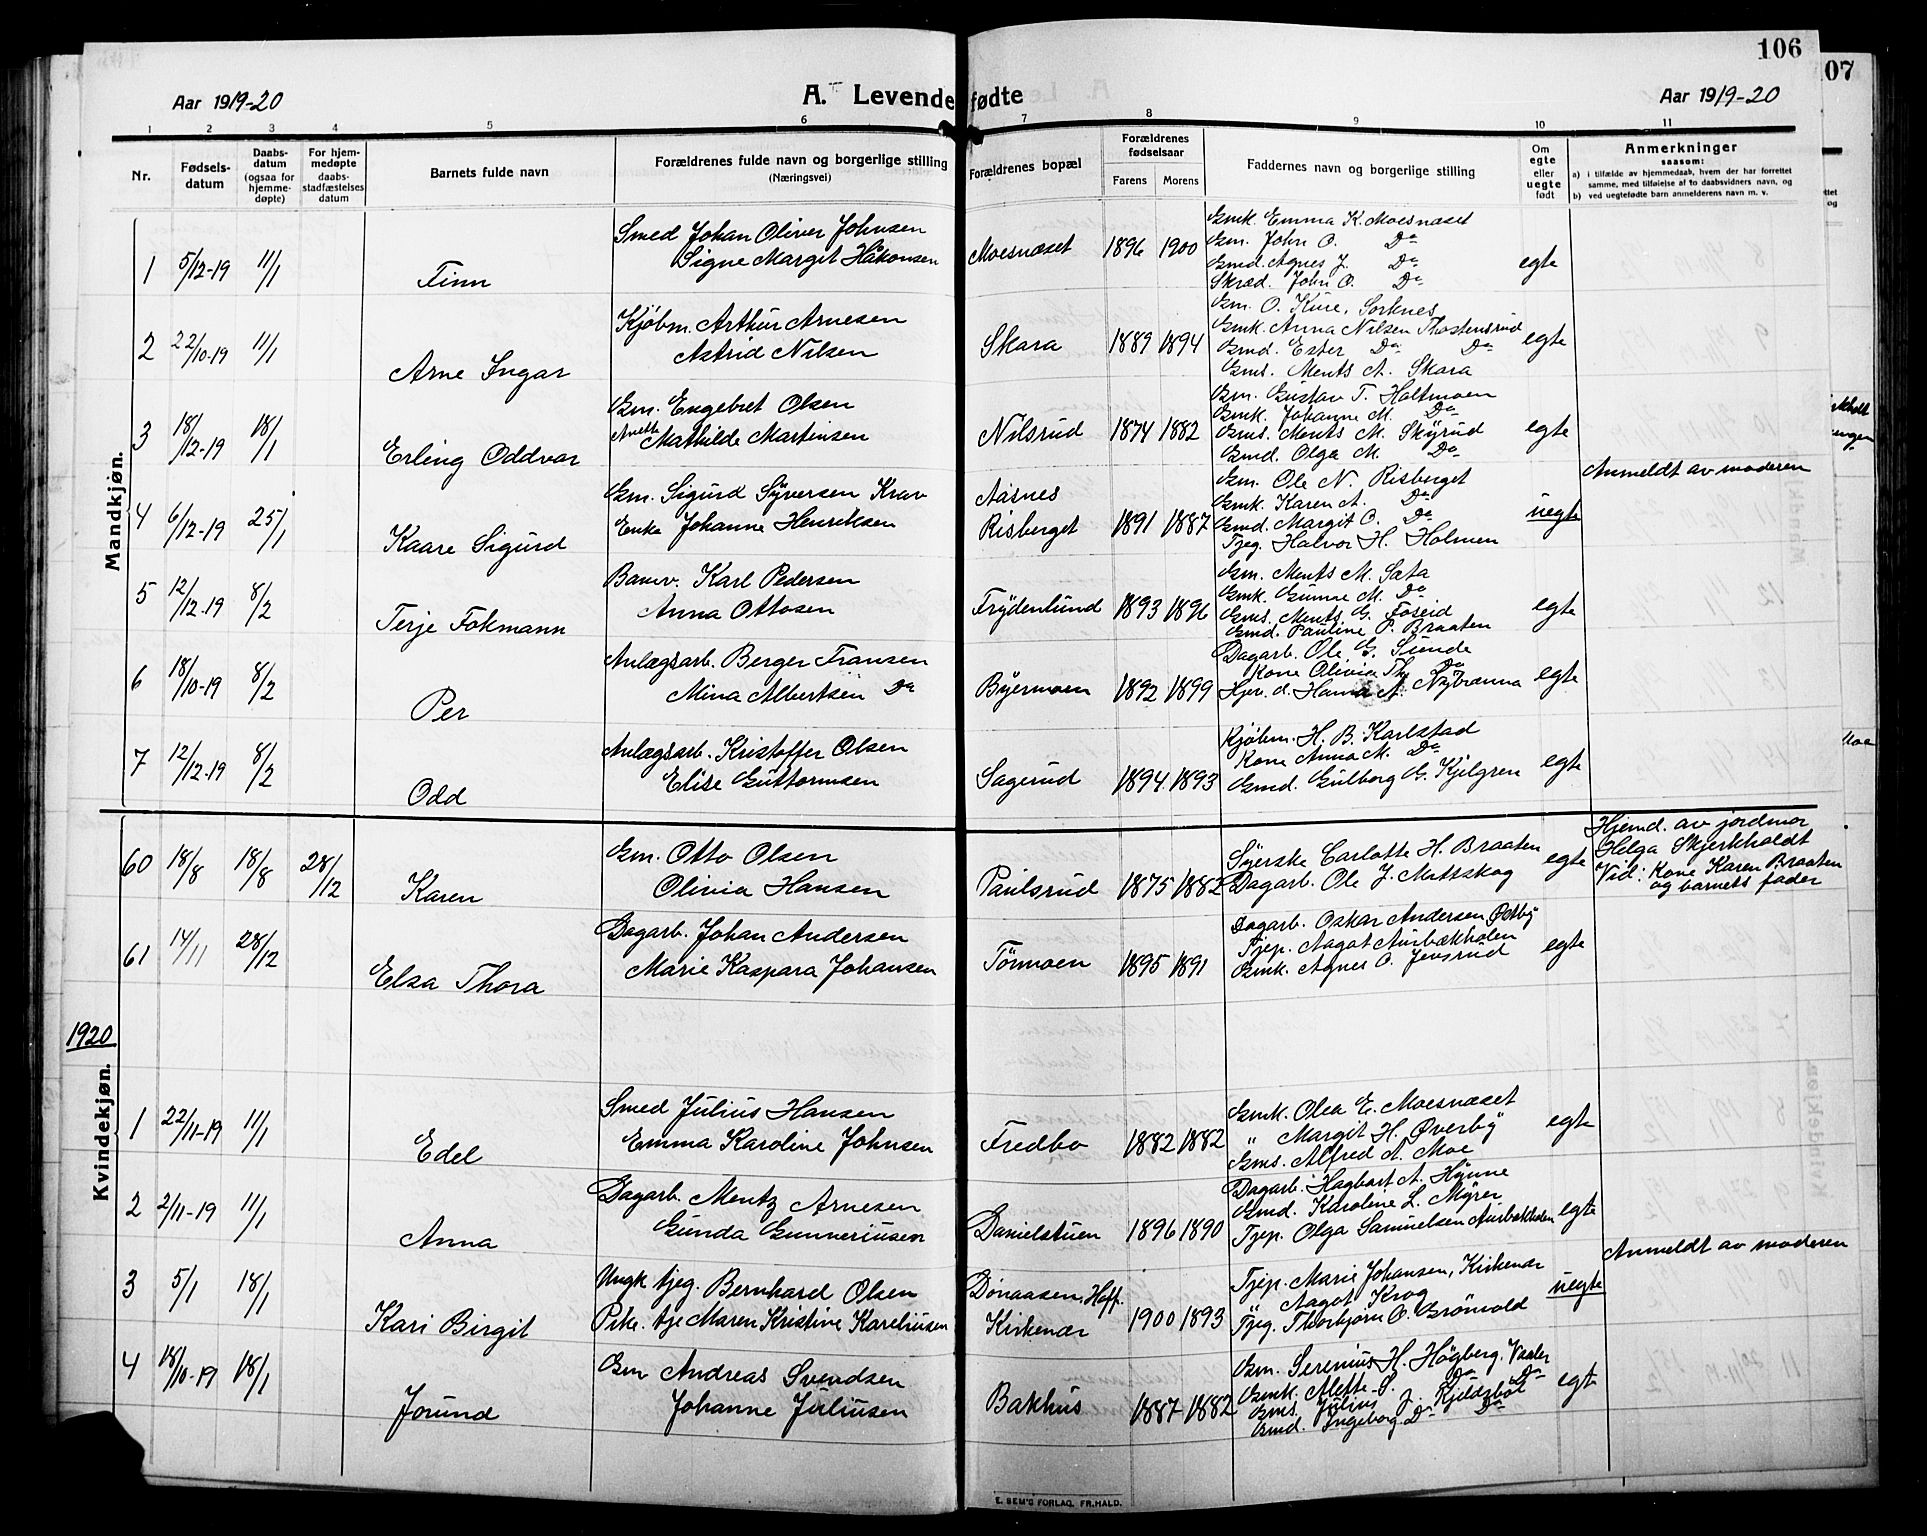 106
07
Aar 1919-20
A. Levendefødte
Aar 1919-20
1 2 3 4 5 6 7 8 9 10 11
Nr.
Fødsels-datum
Daabs-datum (ogsaa for hjemme-døpte)
For hjem-medøpte daabs-stadfæstelses datum
Barnets fulde navn
Forældrenes fulde navn og borgerlige stilling
(Næringsvei)
Forældrenes bopæl
Forældrenes fødselsaar
Farens Morens
Faddernes navn og borgerlige stilling
Om egte eller uegte født
Anmerkninger
saasom:
a) i tilfælde av hjemmedaab, hvem der har forrettet samme, med tilføielse af to daabsvidners navn, og
b) ved uegtefødte barn anmelderens navn m. v.
Mandkjøn.
1 5/12-19 11/1 Finn
Smed Johan Oliver Johnsen
Signe Margit Håkonsen
Moesnæset 1896 1900
Gmk. Emma K. Moesnæset
Gm. John O. Do
Gmd. Agnes J. Do
Skræd. John O. Do
egte
2 22/10-19 11/1 Arne Ingar
Kjøbm. Arthur Arnesen
Astrid Nilsen
Skara 1889 1894
Gm. O. Kure, Sorknes
Gmk. Anna Nilsen Thostensrud
Gmd. Ester Do Do
Gms. Ments A. Skara
egte
3 18/12-19 18/1 Erling Oddvar
Gm. Engebret Olsen
Anette Mathilde Martinsen
Nilsrud 1874 1882
Gm. Gustav T. Holtmoen
Gmk. Johanne M. Do
Gms. Ments M. Skyrud
Gmd. Olga M. Do
egte
4 6/12-19 25/1 Kaare Sigurd
Gm. Sigurd Syversen Krav
Enke Johanne Henriksen
Aasnes
Risberget 1891 1887
Gm. Ole N. Risberget
Gmk. Karen A. Do
Gmd. Margit O. Do
Tjeg. Halvor H. Holmen
uegte
Anmeldt av moderen
5 12/12-19 8/2 Terje Fokmann
Banv. Karl Pedersen
Anna Ottosen
Frydenlund 1893 1896
Gm. Ments M. Sata
Gmk. Gunne M. Do
Gms. Ments G. Foseid
Gmd. Pauline P. Braaten
egte
6 18/10-19 8/2 Per
Anlægsarb. Berger Fransen
Mina Albertsen Do
Byermoen 1892 1899
Dagarb. Ole G. Sunde
Kone Olivia Th. Do
Hjv. d. Hanna A. Nybrænna
egte
7 12/12-19 8/2 Odd
Anlægsarb. Kristoffer Olsen
Elise Guttormsen
Sagerud 1894 1893
Kjøbm. H. B. Karlstad
Kone Anna M. Do
Gmd. Gulborg G. Kjelgren
egte
60 18/8 18/8 28/12 Karen
Gm. Otto Olsen
Olivia Hansen
Paulsrud 1875 1882
Syerske Carlotte H. Braaten
Dagarb. Ole J. Mattskog
egte
Hjemd. av jordmor
Helga Skjerkholdt
Vid: Kone Karen Braaten
og barnets fader
61 14/11 28/12 Elsa Thora
Dagarb. Johan Andersen
Marie Kaspara Johansen
Tørmoen 1895 1891
Dagarb. Oskar Andersen, Østby
Tjep. Aagot Aurbækholen
Gmk. Agnes O. Jensrud
egte
1920
Kvindekjøn.
1 22/11-19 11/1 Edel
Smed Julius Hansen
Emma Karoline Johnsen
Fredbo 1882 1882
Gmk. Olea E. Moesnæset
" Margit H. Øverby
Gms. Alfred A. Moe
egte
2 2/11-19 11/1 Anna
Dagarb. Mentz Arnesen
Gunda Gunneriusen
Danielstuen 1896 1890
Dagarb. Hagbart A. Hynne
Gmd. Karoline L. Myrer
Tjep. Olga Samuelsen Aurbækholen
egte
3 5/1 18/1 Kari Birgit
Ungk. tjeg. Bernhard Olsen
Pike. tje Maren Kristine Kareliusen
Dønaasen, Hoff.
Kirkenær 1900 1893
Tjep. Marie Johansen, Kirkenær
" Aagot Krog
Tjeg. Thorbjørn O. Grönvold
uegte
Anmeldt av moderen
4 18/10-19 18/1 Jorund
Gm Andreas Svendsen
Johanne Juliusen
Bakhus 1887 1882
Gm. Serenius H. Høgberg, Vaaler
Gmk. Alette S. Do Do
Gms. Julius J. Kjeldsbøl
Gmd. Ingeborg Do Do
egte
E. SEM'S FORLAG, FR.HALD.